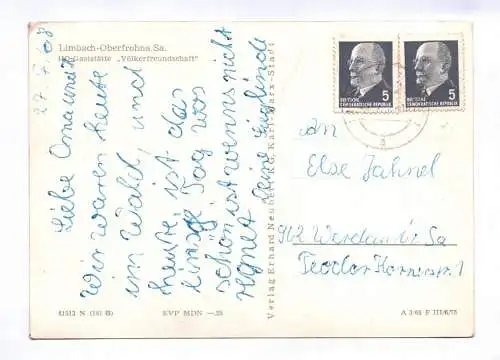 Limbach-Oberfrohna Sa.
HO-Gaststätte „Völkerfreundschaft"
27. 7. 68
Liebe Oma
wir waren heute
im Wald, und
heute ist der
einzige Tag wos
schön ist wenns nicht
regnet Deine Sieglinde
Verlag Erhard Neubert KG, Karl-Marx-Stadt
5
DEUTSCHE
DEMOKRATISCHE REPUBLIK
5
DEUTSCHE
DEMOKRATISCHE REPUBLIK
An
Else Jahnel
962 Werdau i. Sa
Teodor Körnerstr. 1
EVP MDN —,25
A 3/65 F III/6/75